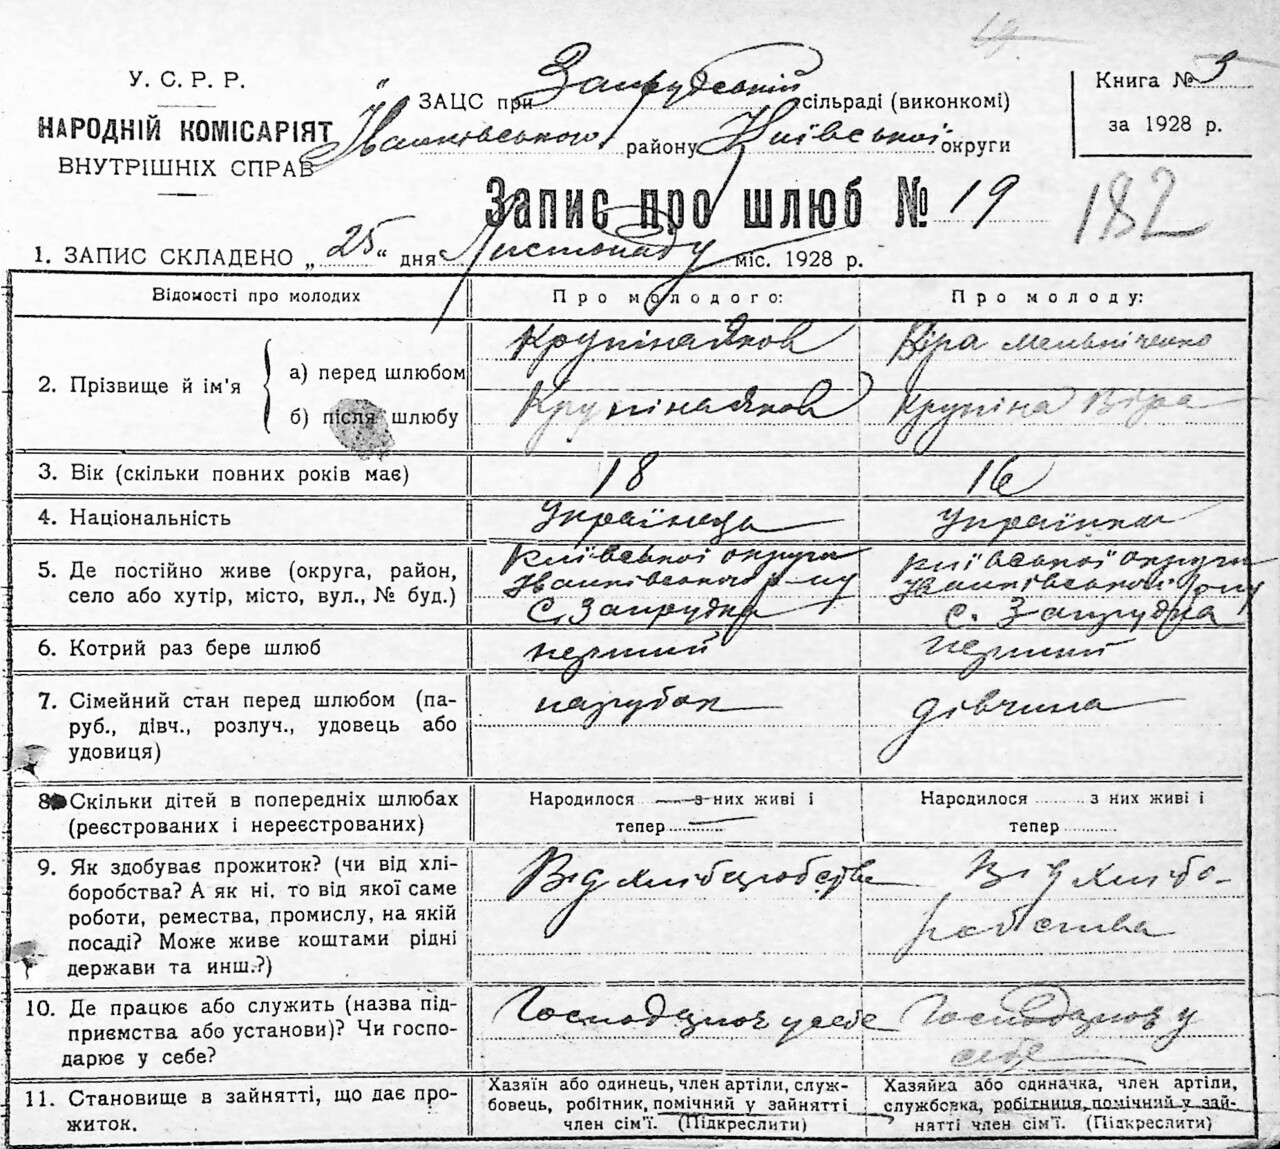 19
У. С. Р. Р.
НАРОДНІЙ КОМІСАРІЯТ
ВНУТРІШНІХ СПРАВ
ЗАЦС при Запрудській сільраді (виконкомі)
Іванківського району Київської округи
Книга № 3
за 1928 р.
Запис про шлюб № 19
182
1. ЗАПИС СКЛАДЕНО „ 25 “ дня Листопаду міс. 1928 р.
Відомості про молодих
Про молодого:
Про молоду:
2. Прізвище й ім'я
а) перед шлюбом
Крупіна Яков
Віра Мельніченко
б) після шлюбу
Крупіна Яков
Крупіна Віра
3. Вік (скільки повних років має)
18
16
4. Національність
Українець
Українка
5. Де постійно живе (округа, район,
село або хутір, місто, вул., № буд.)
Київської округи
Іванківського р-ну
С. Запрудка
Київської округи
Іванківського р-ну
с. Запрудка
6. Котрий раз бере шлюб
перший
перший
7. Сімейний стан перед шлюбом (па-
руб., дівч., розлуч., удовець або
удовиця)
парубок
дівчина
8. Скільки дітей в попередніх шлюбах
(реєстрованих і нереєстрованих)
Народилося — з них живі і
тепер —
Народилося ........ з них живі і
тепер ............
9. Як здобуває прожиток? (чи від хлі-
боробства? А як ні, то від якої саме
роботи, ремества, промислу, на якій
посаді? Може живе коштами рідні
держави та инш.?)
Від хліборобства
Від хлібо-
робства
10. Де працює або служить (назва під-
приємства або установи)? Чи госпо-
дарює у себе?
у себе
у
себе
11. Становище в зайнятті, що дає про-
житок.
Хазяїн або одинець, член артіли, служ-
бовець, робітник, помічний у зайнятті
член сім'ї. (Підкреслити)
Хазяйка або одиначка, член артіли,
службовка, робітниця, помічний у зай-
нятті член сім'ї. (Підкреслити)